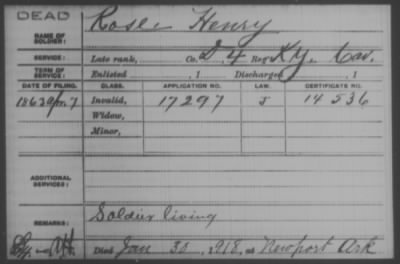 DEAD
NAME OF SOLDIER: Rose Henry
SERVICE: Late rank, Co. D, 4 Reg't Ky. Cav.
TERM OF SERVICE: Enlisted , 1 Discharged , 1
DATE OF FILING. CLASS. APPLICATION NO. LAW. CERTIFICATE NO.
1863 Apr. 7 Invalid, 17297 14536
Widow,
Minor,
ADDITIONAL SERVICES:
REMARKS: Soldier living
Died Jan 30, 1918, at Newport Ark